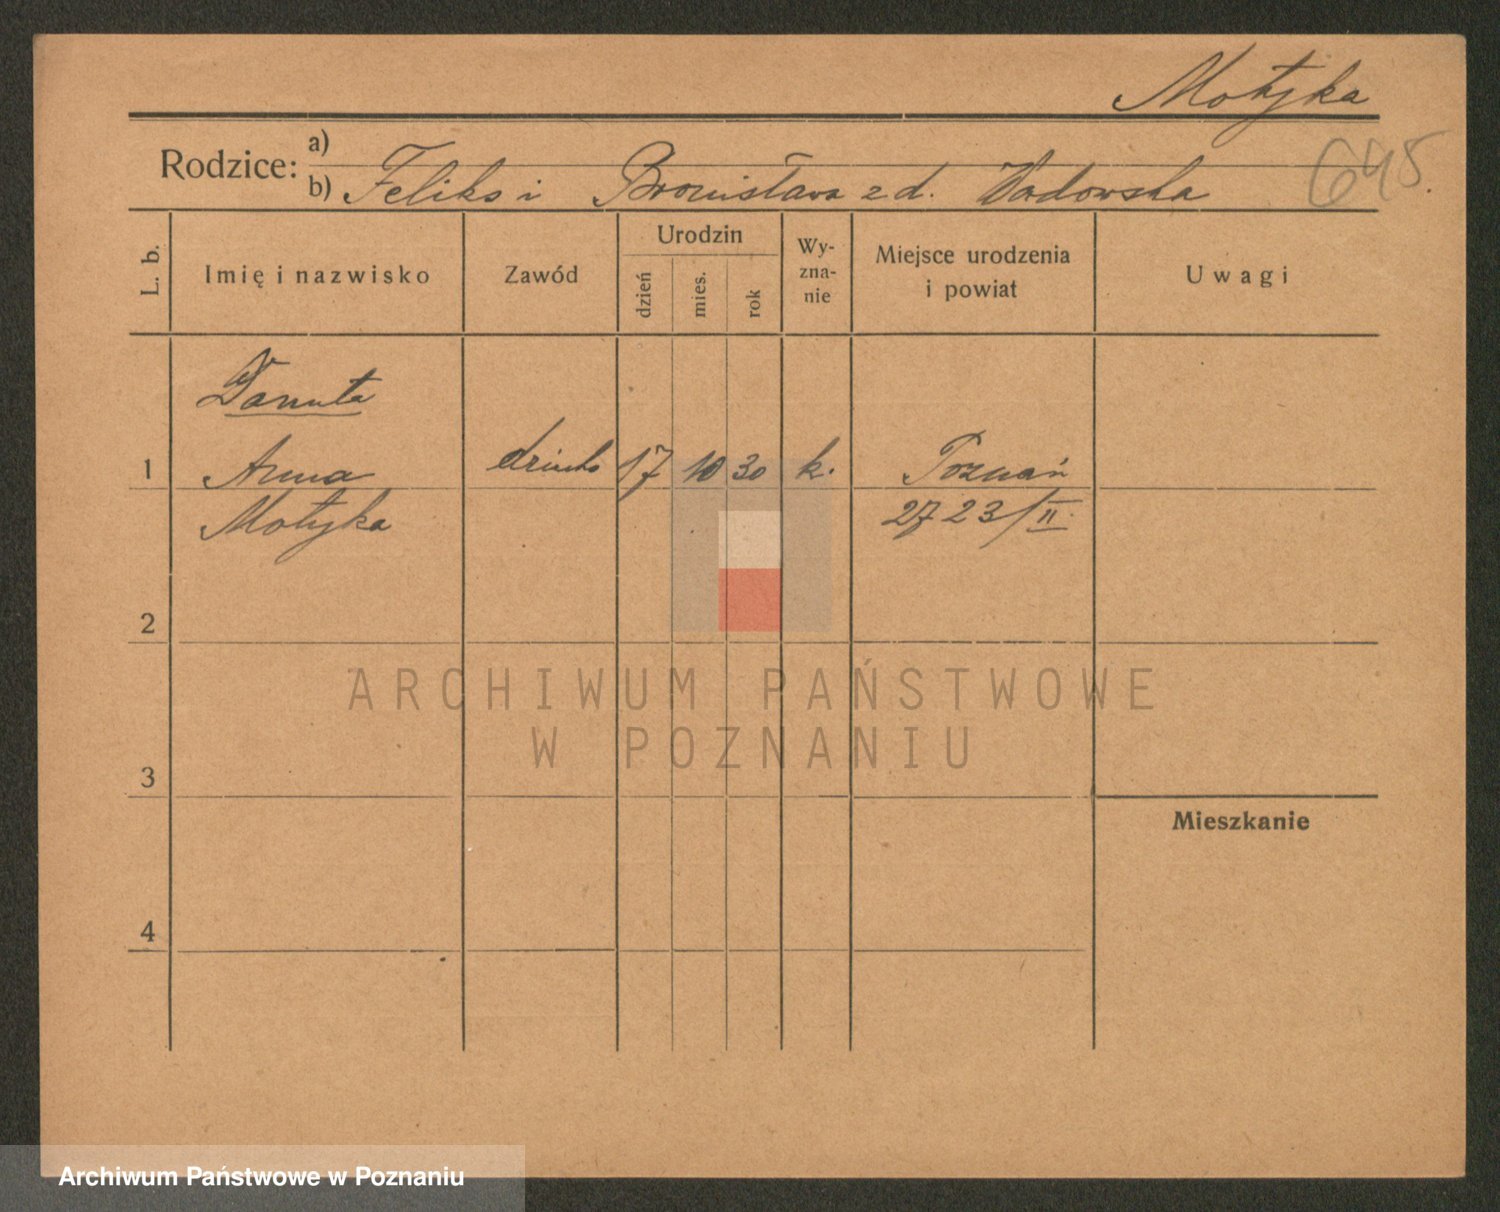 Motyka
Rodzice: a)
b) Feliks i Bronisława z d. Wadowska
645.
L. b.
Imię i nazwisko
Zawód
Urodzin
dzień
mies.
rok
Wy-
zna-
nie
Miejsce urodzenia
i powiat
Uwagi
Danuta
1 Anna dziecko 17 10 30 k. Poznań
Motyka 2723/II.
2
3
4
Mieszkanie
ARCHIWUM PAŃSTWOWE
W POZNANIU
Archiwum Państwowe w Poznaniu